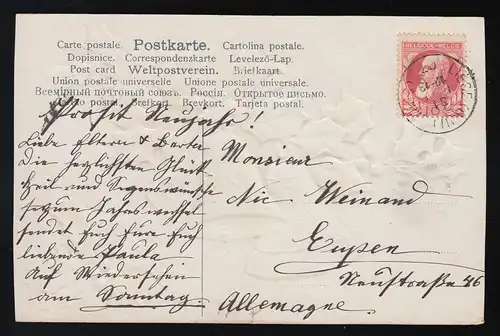 Carte postale. Postkarte. Cartolina postale.
Dopisnice. Correspondenzkarte Levelező-Lap.
Post card Weltpostverein. Briefkaart.
Union postale universelle Unione postale universale.
Всемірный почтовый союзъ. Россія. Открытое письмо.
Carto postal. Brefkort. Brevkort. Tarjeta postal.
BELGIQUE·BELGIE
Prosit Neujahr!
Liebe Eltern &
Die herzlichsten Glück
und Segenswünsche
zum Jahreswechsel
sendet Euch Eure Euch
liebende Paula
Auf Wiedersehen
am Sonntag.
Monsieur
Nic Weinand
Eupen
Neustraße 46
Allemagne.